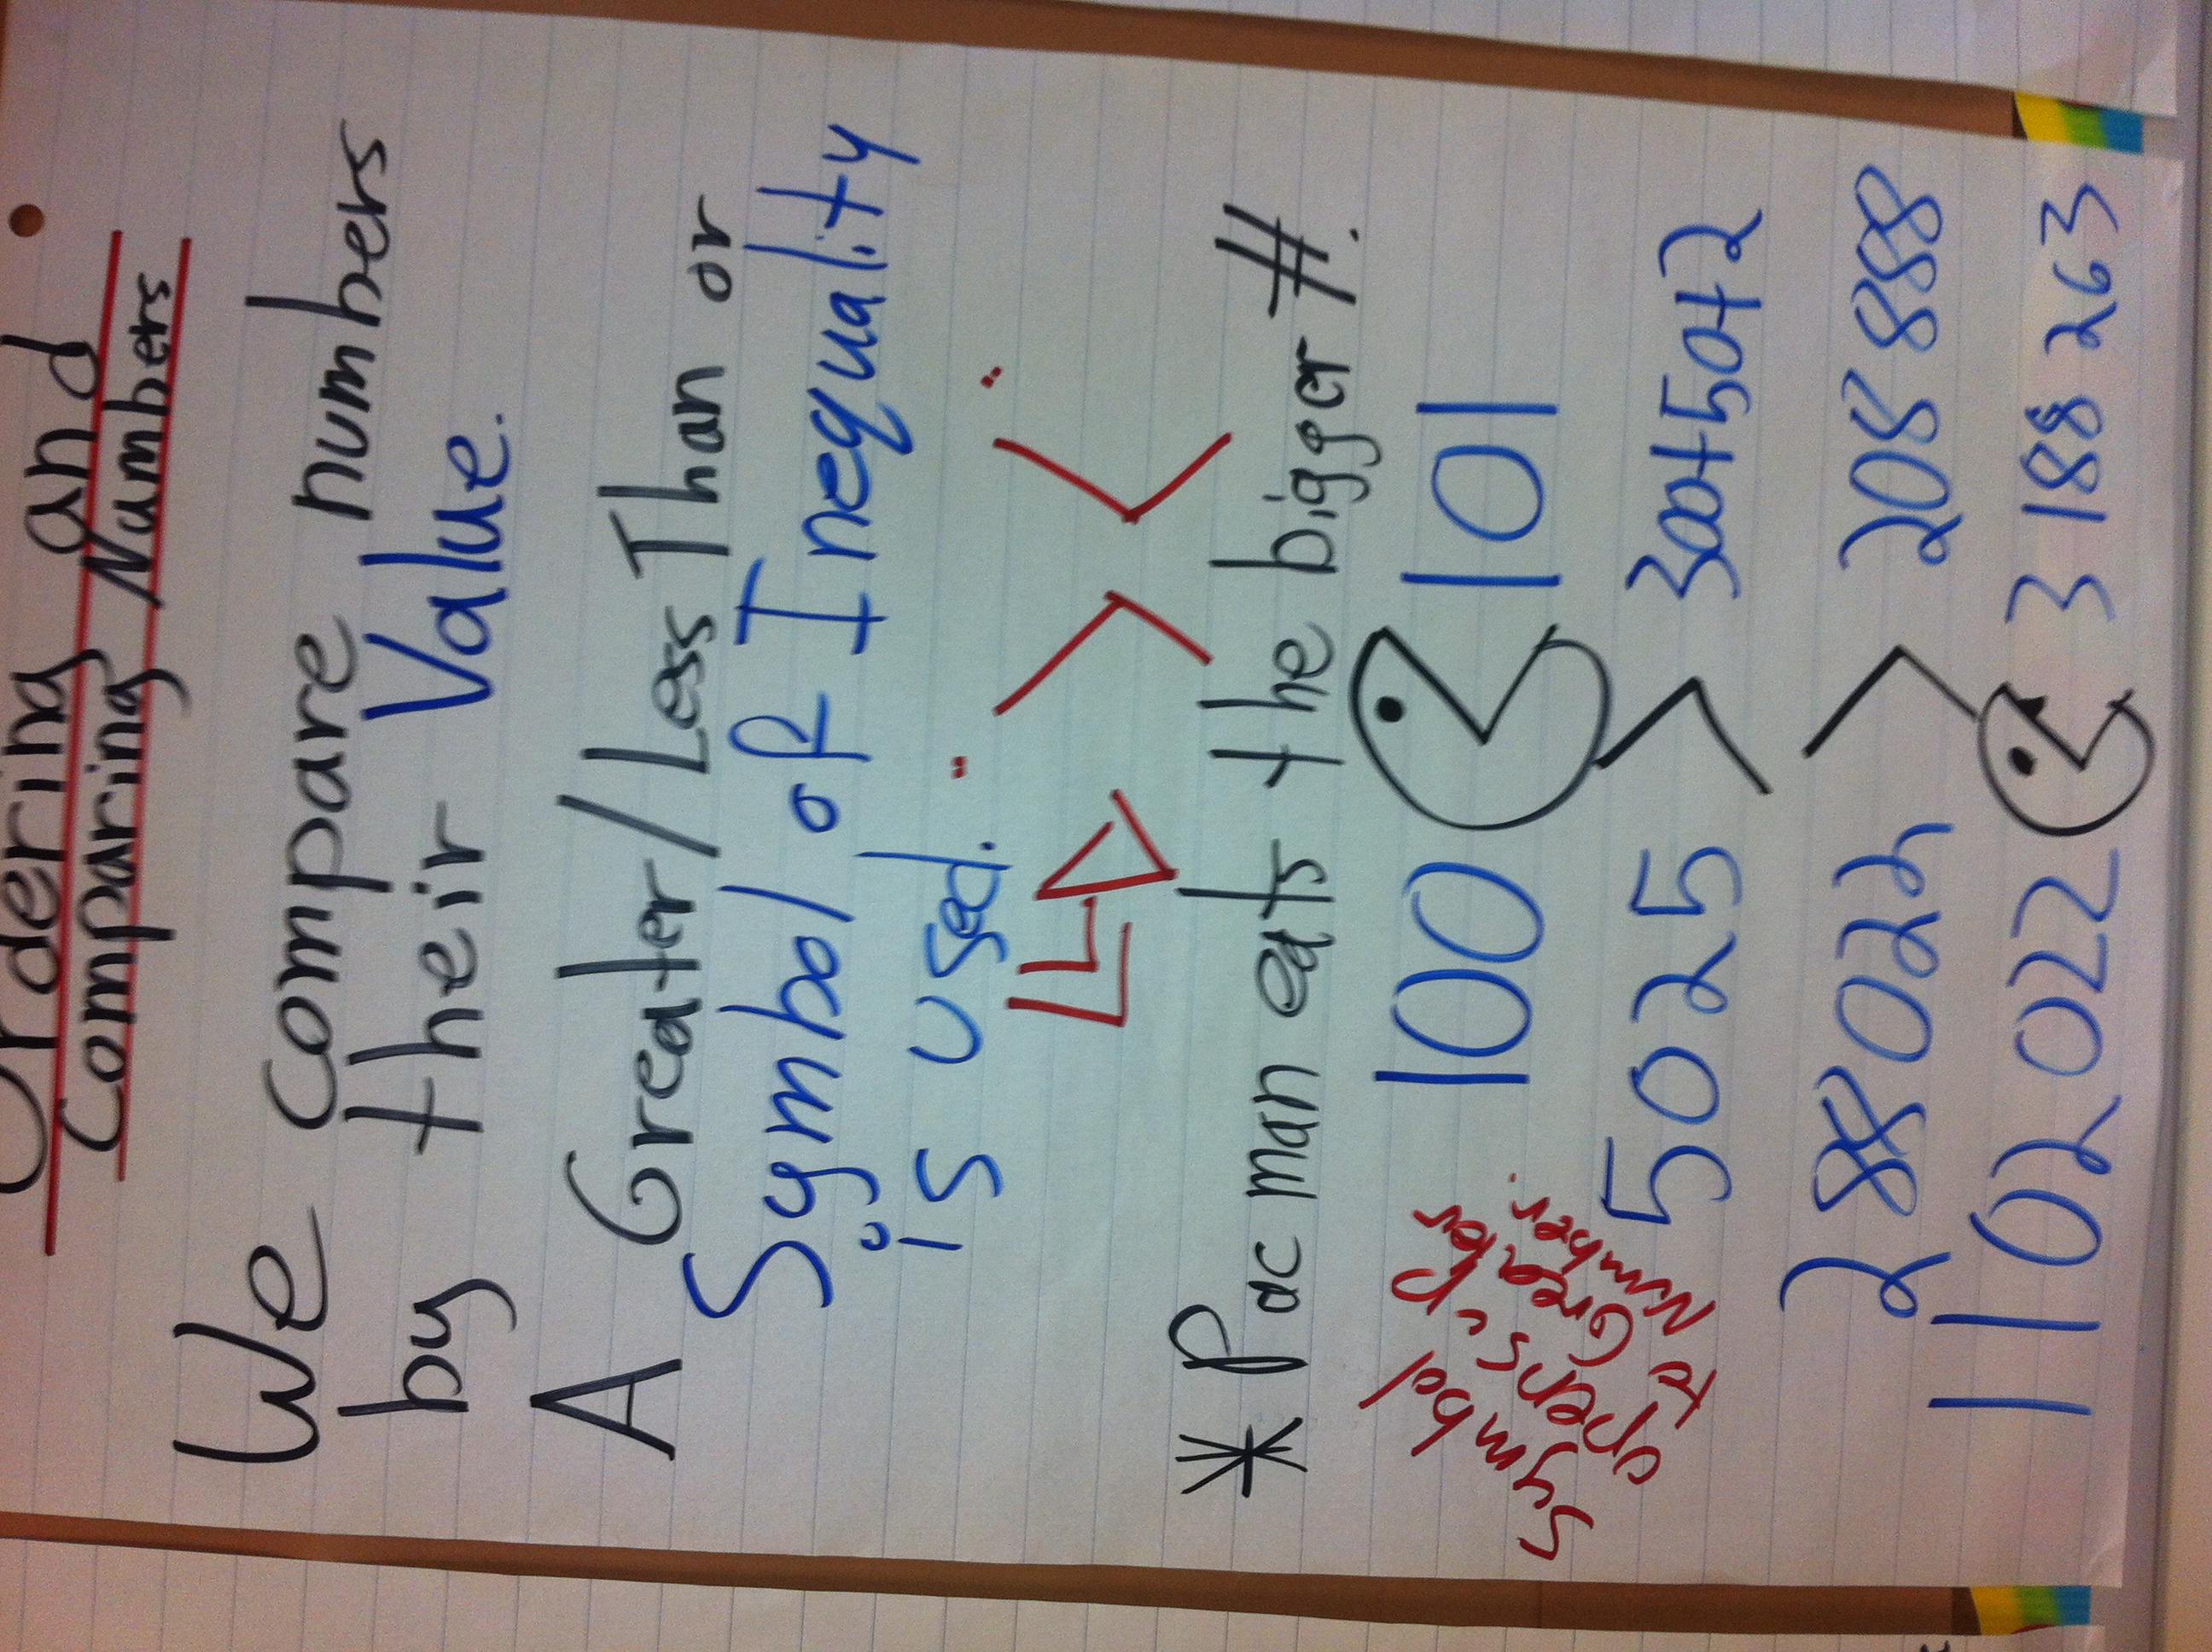 Ordering and
Comparing Numbers
We compare numbers
by their Value.
A Greater/Less Than or
Symbol of Inequality
is used.
> <
* Pac man eats the bigger #.
Symbol
opens up
to Greater
Number.
100 < 101
5025 > 300+50+2
28022 > 208 888
1102022 < 3 188 263